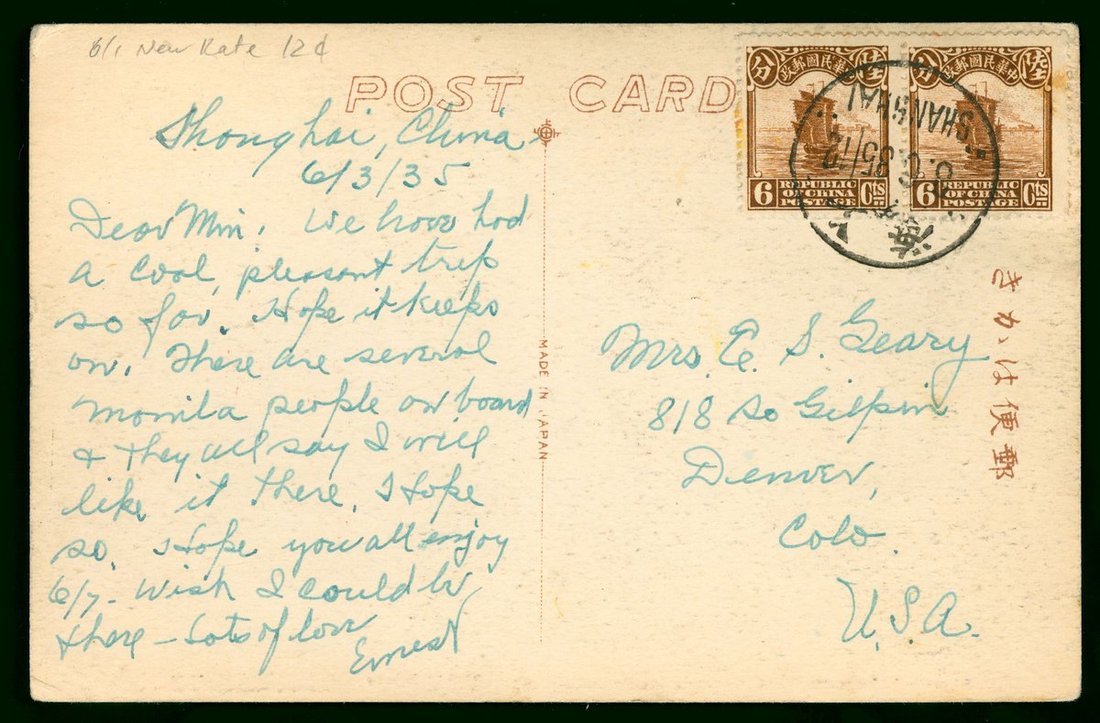 6/1 New Rate 12¢
POST CARD
Shanghai, China
6/3/35
Dear Min. We have had
a cool, pleasant trip
so far. Hope it keeps
on. There are several
Manila people on board
& they all say I will
like it there. I hope
so. Hope you all enjoy
6/7. Wish I could be
there - Lots of love
Ernest
MADE IN JAPAN
分 政郵國民華中 陸
6 REPUBLIC OF CHINA POSTAGE Cts
分 政郵國民華中 陸
6 REPUBLIC OF CHINA POSTAGE Cts
SHANGHAI
35/12
上海
Mrs. E. S. Geary
818 So Gilpin
Denver,
Colo.
U.S.A.
郵便はかき